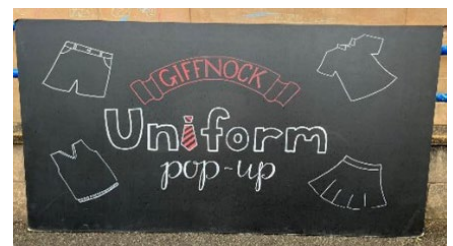 GIFFNOCK
Uniform
pop-up